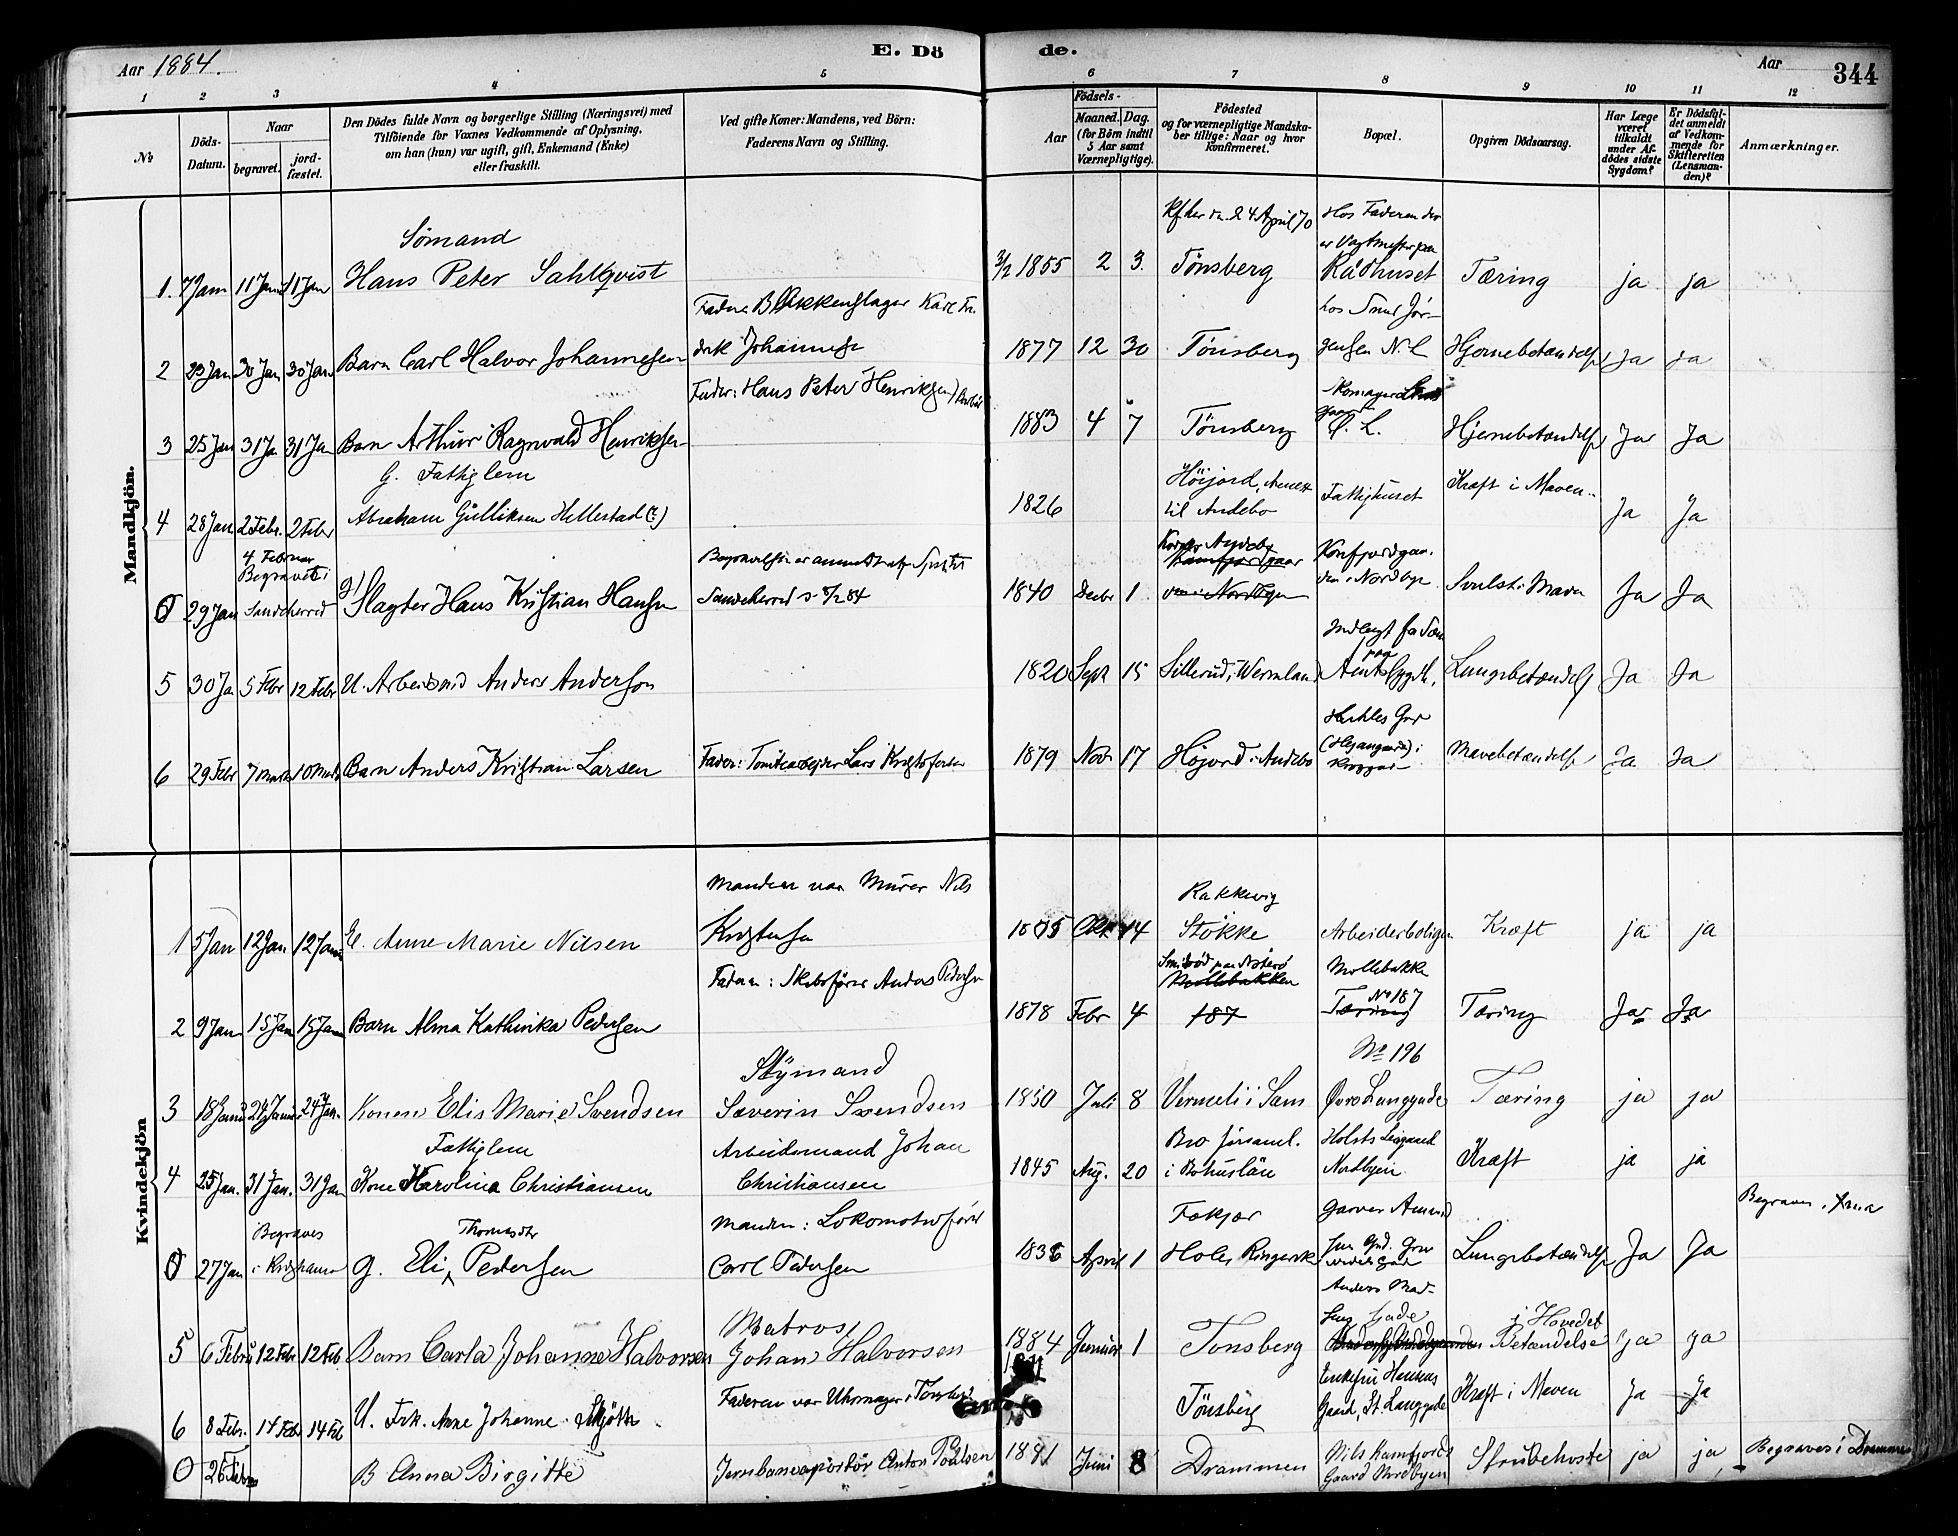 Aar 1884.
E. Dö de.
Aar 344
1 2 3 4 5 6 7 8 9 10 11 12
No
Döds-Datum.
Naar begravet. jord-fæstet.
Den Dödes fulde Navn og borgerlige Stilling (Næringsvei) med Tilföiende for Voxnes Vedkommende af Oplysning, om han (hun) var ugift, gift, Enkemand (Enke) eller fraskilt.
Ved gifte Koner: Mandens, ved Börn: Faderens Navn og Stilling.
Födsels- Aar Maaned. Dag. (for Börn indtil 5 Aar samt Værnepligtige).
Födested og for værnepligtige Mandskaber tillige: Naar og hvor konfirmeret.
Bopæl.
Opgiven Dödsaarsag.
Har Læge været tilkaldt under Afdödes sidste Sygdom?
Er Dödsfaldet anmeldt af Vedkommende for Skifteretten (Lensmanden)?
Anmærkninger.
Mandkjön.
Sömand
24 April 70
Hos Faderen der
er Vagtmester paa
1. 7 Jan 11 Jan 11 Jan Hans Peter Sahlqvist 3/2 1855 2 3. Tönsberg Rådhuset Tæring ja ja
2 23 Jan 30 Jan 30 Jan Barn Carl Halvor Johannesen 1877 12 30 Tönsberg Hjernebetændelse ja ja
Fader: Hans Peter Henriksen
3 25 Jan 31 Ja 31 Jan Barn Arthur Ragnvald Henriksen 1883 4 7 Tönsberg Ö. L. Hjernebetændelse Ja Ja
G. Fattiglem
4 28 Jan 2 Febr. 2 Febr Abraham Gulliksen Hillestad (?) 1826 Höijord, Annex til Andebo Fattighuset Kræft i Maven Ja Ja
4 Februar
Begravet i
0 29 Jan Sandeherred g) Slagter Hans Kristian Hansen Sandeherred 1840 Decbr 1 Svulst i Maven Ja Ja
5 30 Ja 5 Febr 12 Febr U. Arbeidsmd Anders Anderson 1820 Sept 15 Sillerud, Wermland Lungebetændelse Ja Ja
6 29 Febr 7 Marts 10 Marts Barn Anders Kristian Larsen Fader: Tomtearbeider Lars Kristofersen 1879 Nov. 17 Höjord i Andebo Mavebetændelse Ja Ja
Kvindekjön
Manden var Murer Nils
Rakkevig
1 5 Jan 12 Jan 12 Jan E. Anne Marie Nilsen Kristensen 14 Stökke Arbeiderboligen Kræft ja ja
Faderen: Skibsfører Anders Pedersen
Møllebakken Møllebakke
2 9 Jan 15 Jan 15 Jan Barn Alma Kathinka Pedersen 1878 Febr 4 187 Tæring No 187 Tæring Ja Ja
Styrmand No 196
3 18 Janu 24 Janu 24 Jan. Konen Elis Marie Svendsen Severin Svendsen 1850 Juli 8 Tæring ja ja
Fattiglem
Arbeidsmand Johan
4 25 Jan. 31 Jan. 31 Jan Kone Karolina Christiansen Christiansen 1845 Aug. 20 i Bohuslän Nordbyen Kræft ja ja
Begraves
Thomasdtr
Manden: Lokomotivfører
0 27 Jan g. Eli Pedersen Carl Pedersen April 1 Hole, Ringerike Lungebetændelse Ja Ja
Matros
5 6 Febru 12 Febr 12 Feb Barn Carla Johanne Halvorsen Johan Halvorsen 1884 Januar 1 Tonsberg Betændelse i Hovedet ja ja
Faderen var Uhrmager i Tönsberg
6 8 Febr. 14 Febr 14 Feb U. Frk. Anne Johanne Tönsberg Gaard, St. Langgade Kræft i Maven Ja Ja
0 26 Febr B Anna Birgitte Anton Poulsen 1881 Juni 8 Drammen Gaard Nordbyen Strubehoste ja ja Begraves i Drammen